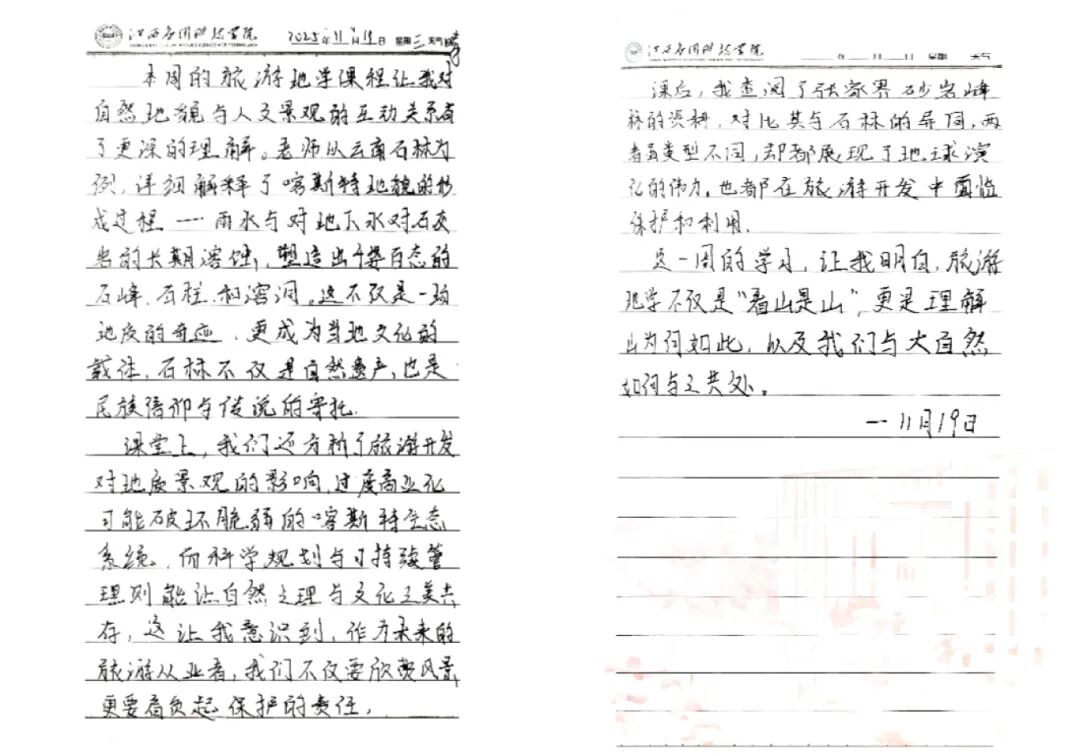 江西应用科技学院 2025年11月19日 星期三 天气
本周的旅游地学课程让我对
自然地貌与人文景观的互动关系有
了更深的理解。老师以云南石林为
例,详细解释了喀斯特地貌的形
成过程——雨水与对地下水对石灰
岩的长期溶蚀,塑造出千姿百态的
石峰、石柱、和溶洞。这不仅是一场
地质的奇迹,更成为当地文化的
载体,石林不仅是自然遗产,也是
民族信仰与传说的寄托.
课堂上,我们还分析了旅游开发
对地质景观的影响,过度商业化
可能破坏脆弱的喀斯特生态
系统,而科学规划与可持续管
理则能让自然之理与文化之美共
存,这让我意识到,作为未来的
旅游从业者,我们不仅要欣赏风景
更要肩负起保护的责任,
江西应用科技学院 年 月 日 星期 天气
课后,我查阅了张家界砂岩峰
林的资料,对比其与石林的异同,两
者虽类型不同,却都展现了地球演
化的伟力,也都在旅游开发中面临
保护和利用.
这一周的学习,让我明白,旅游
地学不仅是“看山是山”,更是理解
山为何如此,以及我们与大自然
如何与之共处。
—11月19日